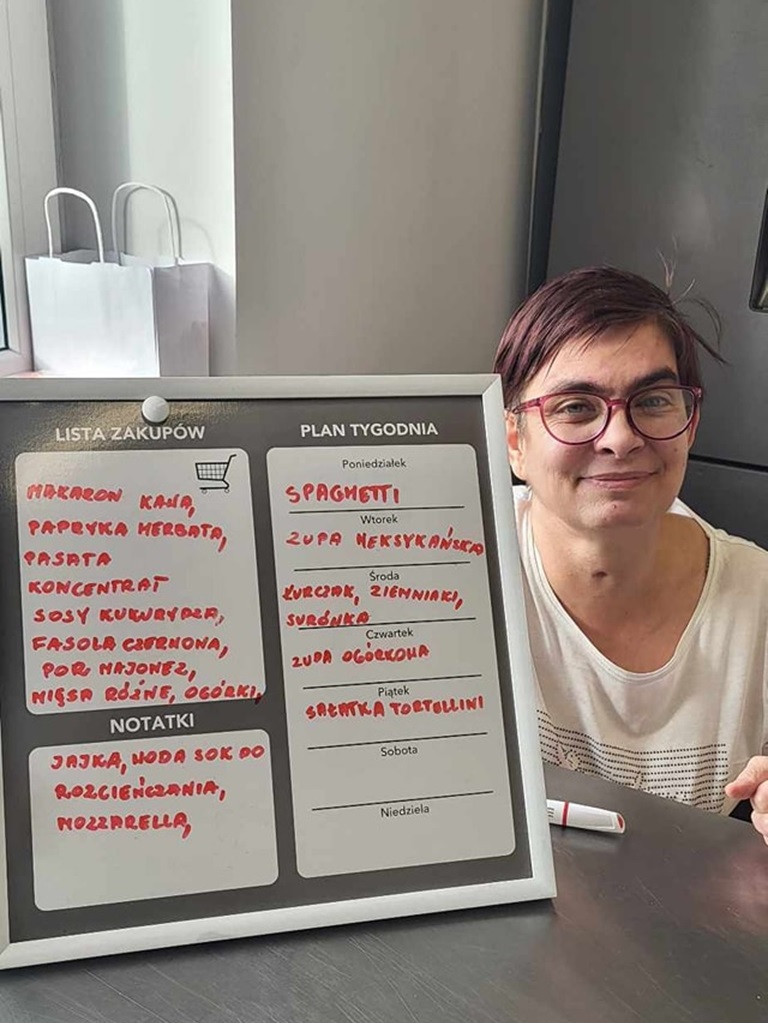 LISTA ZAKUPÓW
MAKARON KAWA,
PAPRYKA HERBATA,
PASATA
KONCENTRAT
SOSY KUKURYDZA,
FASOLA CZERWONA,
POR MAJONEZ,
MIĘSA RÓŻNE, OGÓRKI,
NOTATKI
JAJKA, WODA SOK DO
ROZCIEŃCZANIA,
MOZZARELLA,
PLAN TYGODNIA
Poniedziałek
SPAGHETTI
Wtorek
ZUPA MEKSYKAŃSKA
Środa
KURCZAK, ZIEMNIAKI,
SURÓWKA
Czwartek
ZUPA OGÓRKOWA
Piątek
SAŁATKA TORTELLINI
Sobota
Niedziela